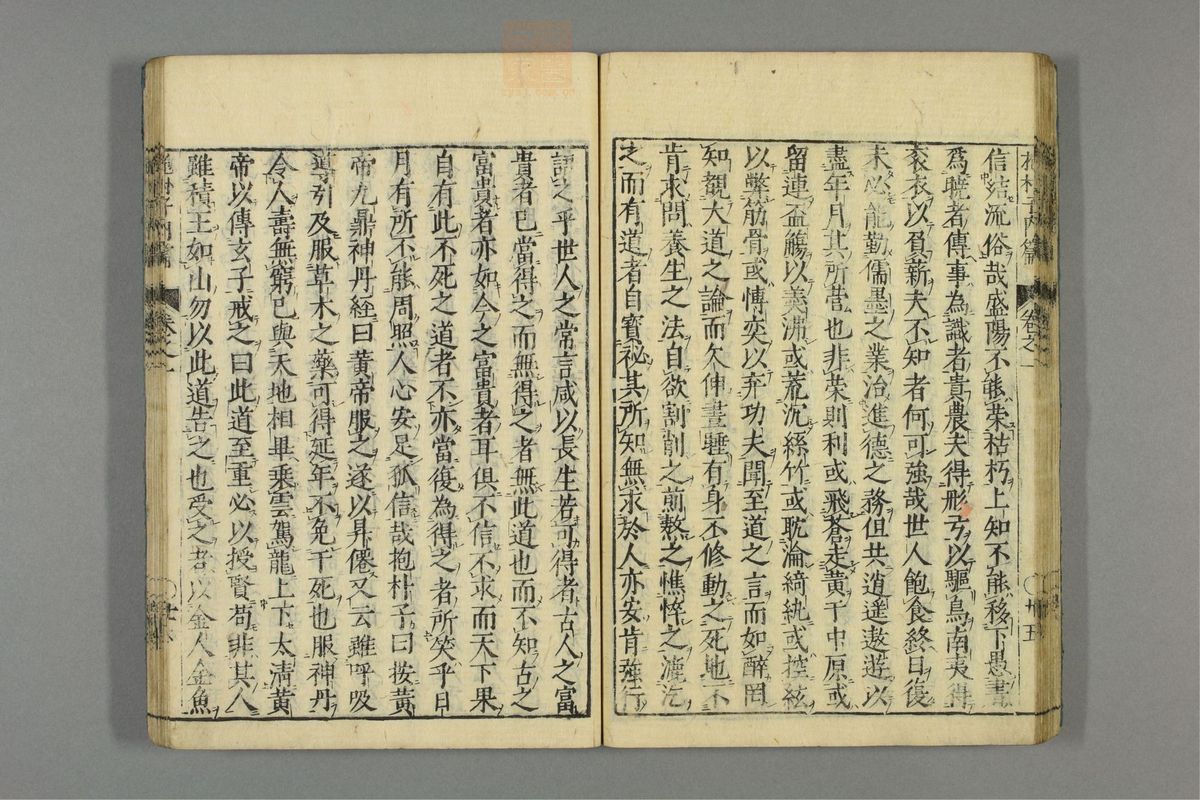 抱朴子内篇 卷之一 廿五
信流俗哉盛陽不能榮枯朽上知不能移下愚書
爲曉者傳事為識者貴農夫得彤弓以驅鳥南夷得
衮衣以負薪夫不知者何可強哉世人飽食終日復
未必能勤儒墨之業治進德之務但共逍遥遨遊以
盡年月其所營也非榮則利或飛蒼走黃于中原或
留連盃觴以羙沸或荒沉絲竹或耽淪綺紈或控絃
以弊筋骨或愽奕以弃功夫聞至道之言而如醉罔
知觀大道之論而欠伸晝睡有身不修動之死地不
肯求問養生之法自欲割削之煎熬之憔悴之漉汔
之而有道者自寳祕其所知無求於人亦安肯強行
語之乎世人之常言咸以長生若可得者古人之富
貴者已當得之而無得之者無此道也而不知古之
富貴者亦如今之富貴者耳俱不信不求而天下果
自有此不死之道者不亦當復為得之者所笑乎日
月有所不能周照人心安足孤信哉抱朴子曰按黃
帝九鼎神丹經曰黃帝服之遂以昇僊又云雖呼吸
導引及服草木之藥可得延年不免于死也服神丹
令人壽無窮已與天地相畢乘雲駕龍上下太清黃
帝以傳玄子戒之曰此道至重必以授賢苟非其人
雖積玉如山勿以此道告之也受之者以金人金魚
抱朴子内篇 卷之一 廿六